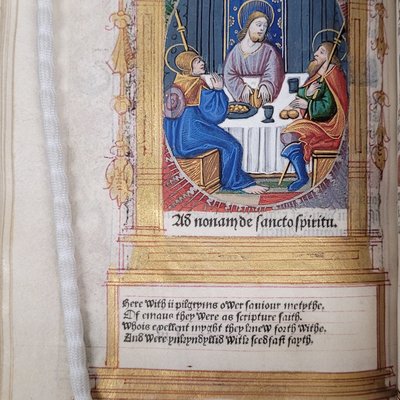 Ad nonam de sancto spiritu.
Here with ii pilgryms ower saviour metythe.
Of emaus they were as scripture saith.
Whois excellent myght they knew forth withe.
And were ynkyndyllid with stedfast fayth.